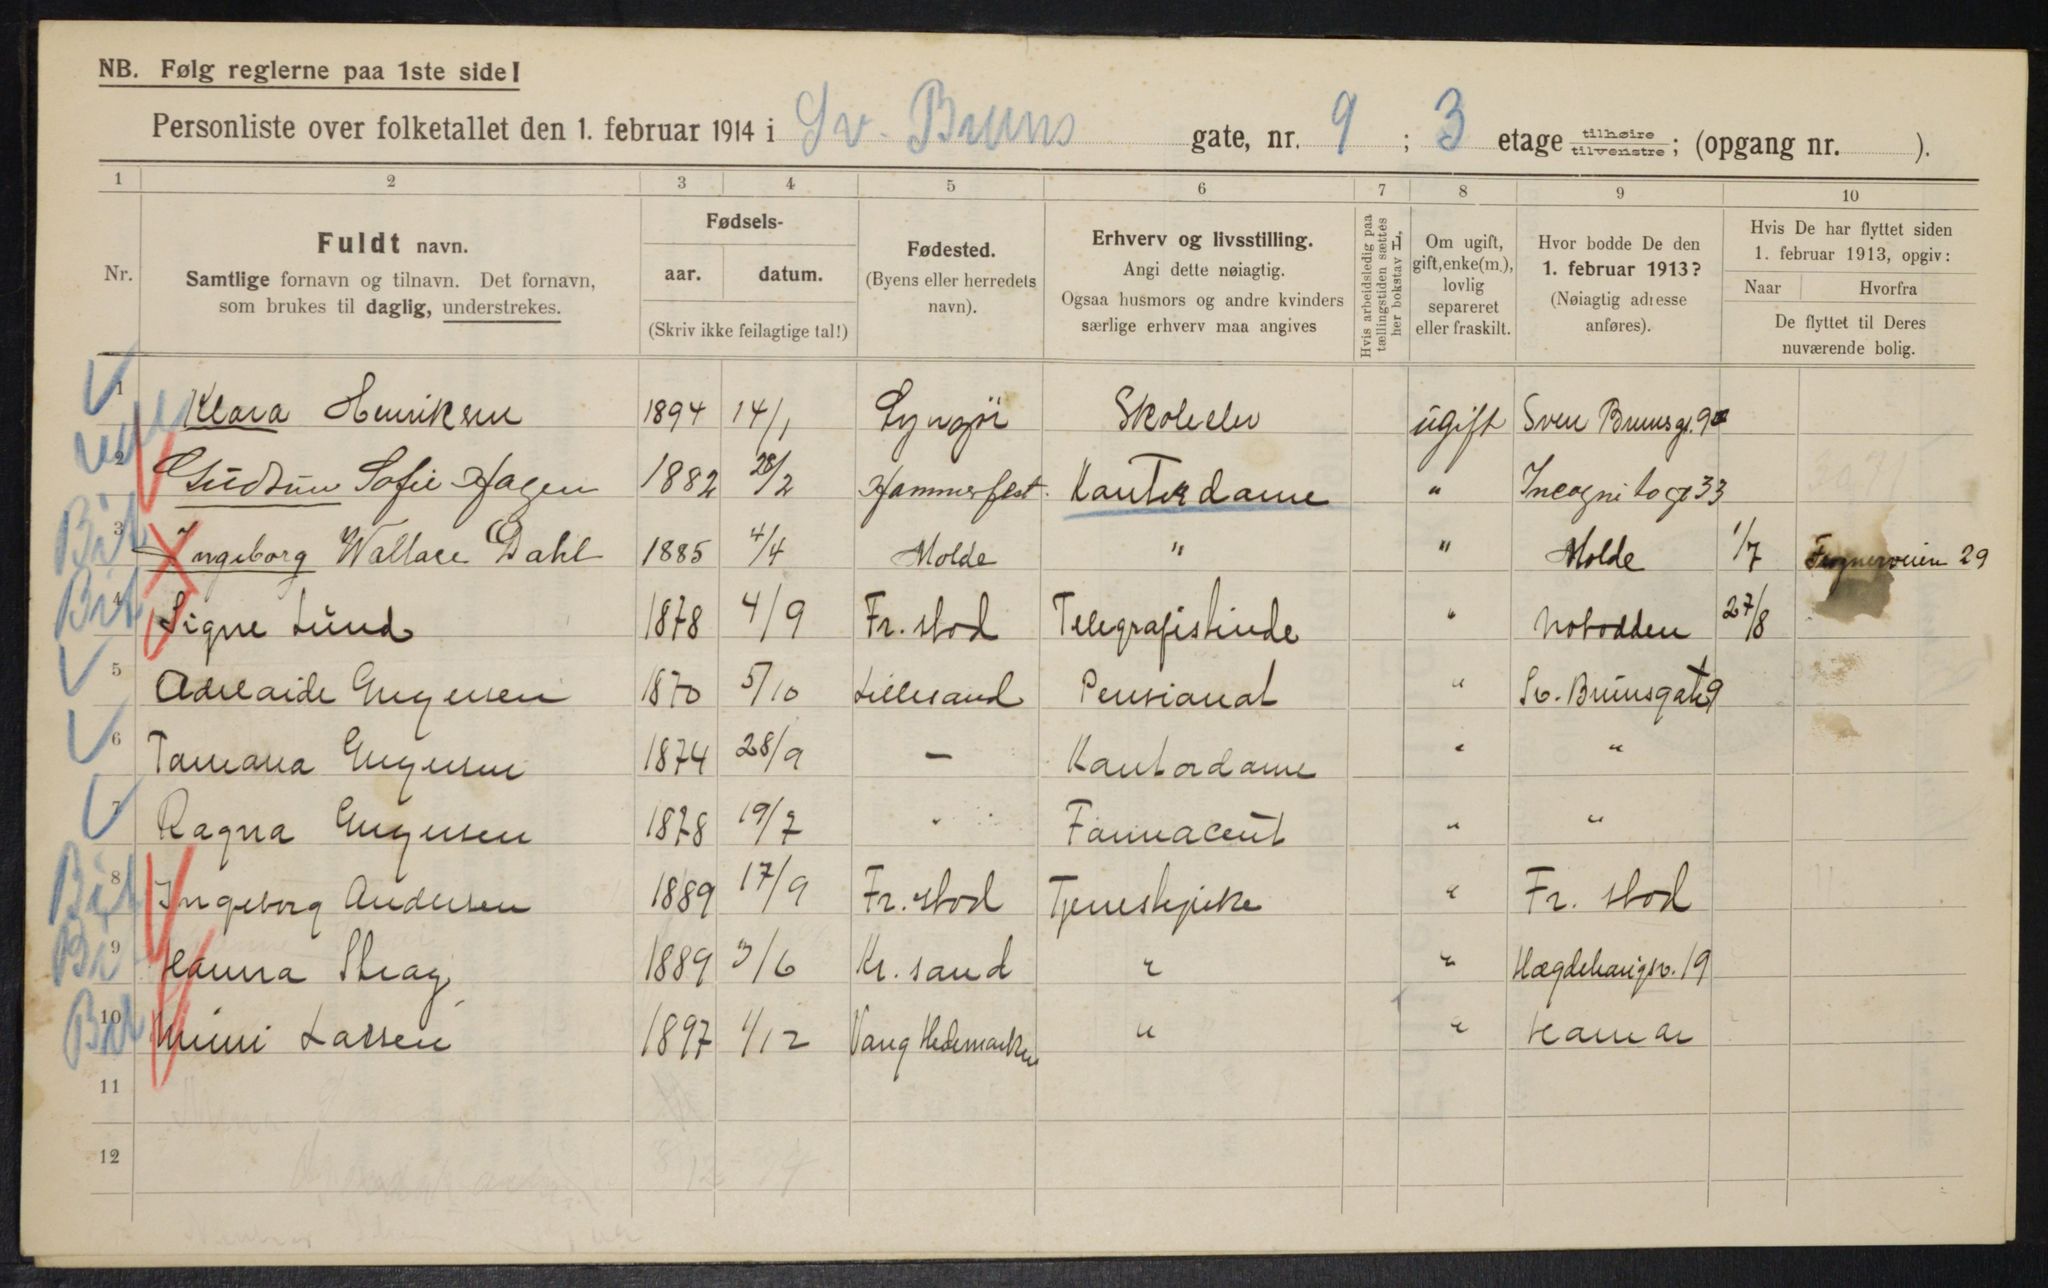 NB. Følg reglerne paa 1ste side!
Personliste over folketallet den 1. februar 1914 i Sv. Bruns gate, nr. 9 ; 3 etage tilhøire/tilvenstre; (opgang nr. ).
1 2 3 4 5 6 7 8 9 10
Nr.
Fuldt navn.
Samtlige fornavn og tilnavn. Det fornavn,
som brukes til daglig, understrekes.
Fødsels-
aar. datum.
(Skriv ikke feilagtige tal!)
Fødested.
(Byens eller herredets
navn).
Erhverv og livsstilling.
Angi dette nøiagtig.
Ogsaa husmors og andre kvinders
særlige erhverv maa angives
Hvis arbeidsledig paa
tællingstiden sættes
her bokstav L.
Om ugift,
gift, enke(m.),
lovlig
separeret
eller fraskilt.
Hvor bodde De den
1. februar 1913?
(Nøiagtig adresse
anføres).
Hvis De har flyttet siden
1. februar 1913, opgiv:
Naar Hvorfra
De flyttet til Deres
nuværende bolig.
1 Klara Henriksen 1894 14/1 Lyngör Skoleelev ugift Sven Brunsgt. 9
2 Gudrun Sofie Hagen 1882 28/2 Hammerfest. Kontordame " Incognitogt 33
3 Ingeborg Wallace Dahl 1885 4/4 Molde " " Molde 1/7 Frognerveien 29
4 Signe Lund 1878 4/9 Fr. stad Telegrafistinde " Notodden 27/8
5 Adelaide Gregersen 1870 5/10 Lillesand Pensionat " Sv. Brunsgate 9
6 Tamara 1874 28/9 — Kontordame " "
7 Ragna 1878 19/7 " Farmaceut " "
8 Ingeborg Andersen 1889 17/9 Fr. stad Tjenestepike " Fr. stad
9 Hanna Skag 1889 3/6 Kr. sand " " Hægdehaugsv. 19
10 Mimi Larsen 1897 1/12 Vang Hedemarken " " Hamar
11
12